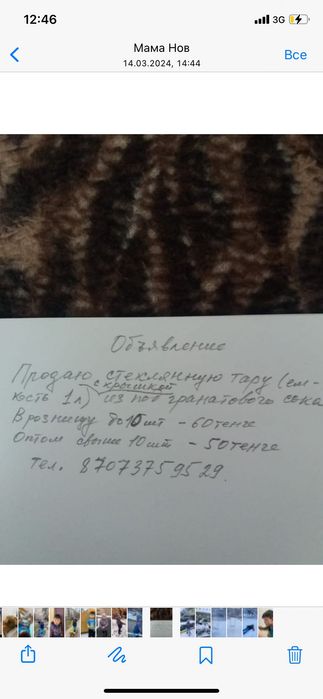 12:46
3G
Мама Нов
14.03.2024, 14:44
Все
Объявление
Продаю стеклянную тару (ем-
с крышкой
кость 1л) из под гранатового сока
В розницу до 10 шт - 60 тенге
Оптом свыше 10 шт - 50 тенге
Тел. 87073759529.